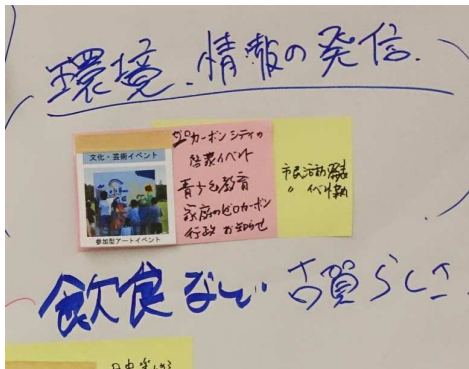 環境、情報の発信
文化・芸術イベント
参加型アートイベント
ゼロカーボンシティの
啓蒙イベント
青少年教育
家庭のゼロカーボン
行政お知らせ
市民活動
〃 イベント
飲食など 古賀らしさ